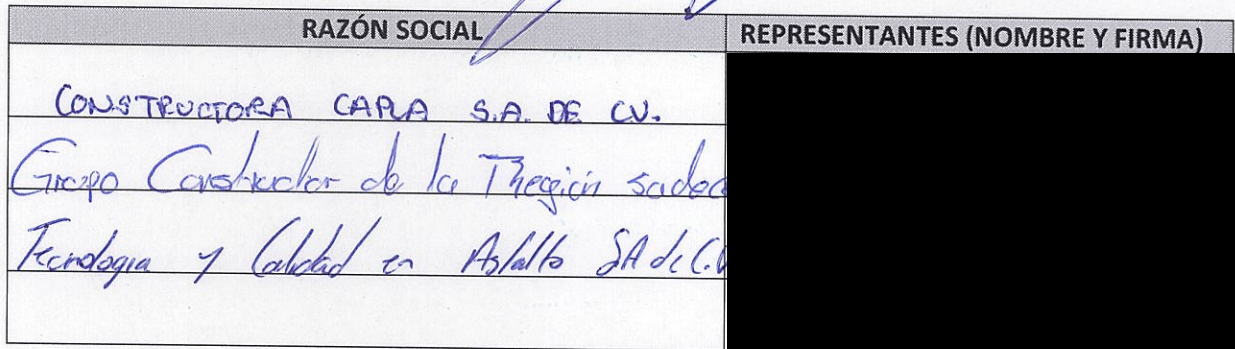 RAZÓN SOCIAL
REPRESENTANTES (NOMBRE Y FIRMA)
CONSTRUCTORA CAPLA S.A. DE CV.
Grupo Constructor de la Region sadec
Tecnologia y Calidad en Asfalto SA de C.V